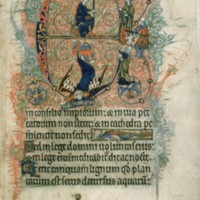 in consilio impiorum: & in uia pec
catorum non stetit: & in cathedra pe
stilencie non sedit
Sed in lege dni uoluntas eius:
in lege eius die ac nocte
Et erit tanquam lignum qd plan
tatum est secus decursus aquarū